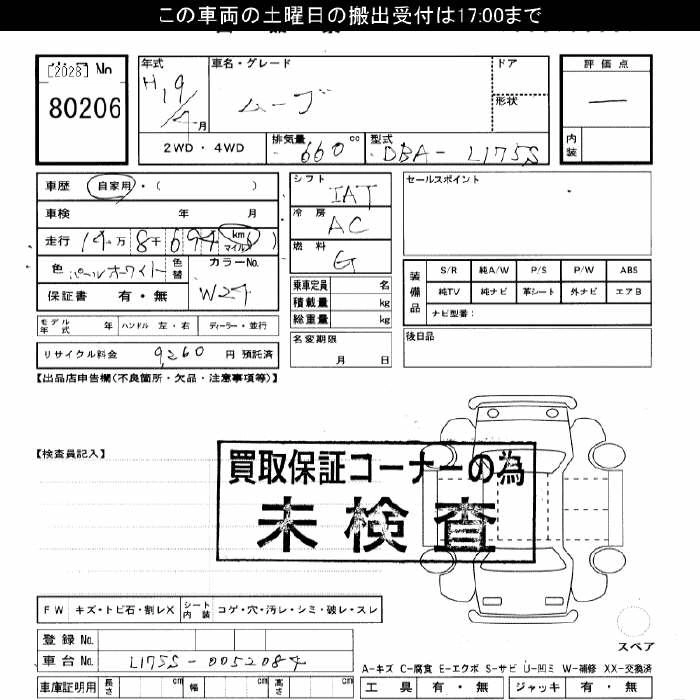 この車両の土曜日の搬出受付は17:00まで
[2028] No
80206
年式
H19/4月
車名・グレード
ムーブ
ドア
形状
評価点
—
内装
2WD・4WD
排気量 660 cc
型式 DBA-L175S
車歴 自家用・( )
車検 年 月
走行 14万8千694 km マイル
色 パールホワイト 色替
カラーNo.
W24
保証書 有・無
シフト IAT
冷房 AC
燃料 G
乗車定員 名
積載量 kg
総重量 kg
セールスポイント
装備品
S/R 純A/W P/S P/W ABS
純TV 純ナビ 革シート 外ナビ エアB
ナビ型番：
モデル年式 年 ハンドル 左・右 ディーラー・並行
名変期限
月 日
後日品
リサイクル料金 9,260 円 預託済
【出品店申告欄(不良箇所・欠品・注意事項等)】
【検査員記入】
買取保証コーナーの為
未検査
FW キズ・トビ石・割レX
シート内装 コゲ・穴・汚レ・シミ・破レ・スレ
スペア
登録 No.
車台 No. L175S-0052084
A-キズ C-腐食 E-エクボ S-サビ U-凹ミ W-補修 XX-交換済
車庫証明用 長さ cm 幅 cm 高さ cm
工具 有・無 ジャッキ 有・無